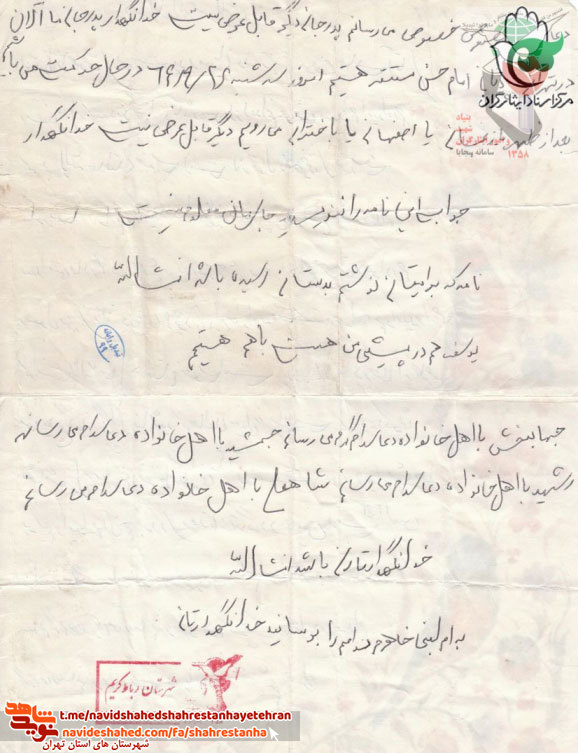 خصوصی می رسانم پدرجان دیگر قابل عرض نیست خدانگهدار پدرجان ما الآن
در پادگان امام حسن مستقر هستیم امروز سه شنبه در حال حرکت می باشم
بعد از ظهر یا اصفهان یا باختران می رویم دیگر قابل عرض نیست خدانگهدار
جواب این نامه را ننویسید جایمان معلوم نیست
نامه که برایتان نوشتم بدستان رسیده باشد انشاالله
یوسف هم در پیش من هست باهم هستیم
جهانبخش با اهل خانواده دعا سلام گرم می رسانم جمشید با اهل خانواده دعا سلام می رسانم
رشید با اهل خانواده دعا سلام می رسانم شاهعلی با اهل خانواده دعا سلام می رسانم
خدانگهدارتان باشد انشاالله
خواهرم سلام را برسانید خدانگهدارتان
مرکز اسناد ایثارگران
بنیاد
شهید
سامانه
۱۳۵۸
۹۹
شهرستان رباط کریم
نوید شاهد
t.me/navidshahedshahrestanhayetehran
navideshahed.com/fa/shahrestanha
شهرستان های استان تهران